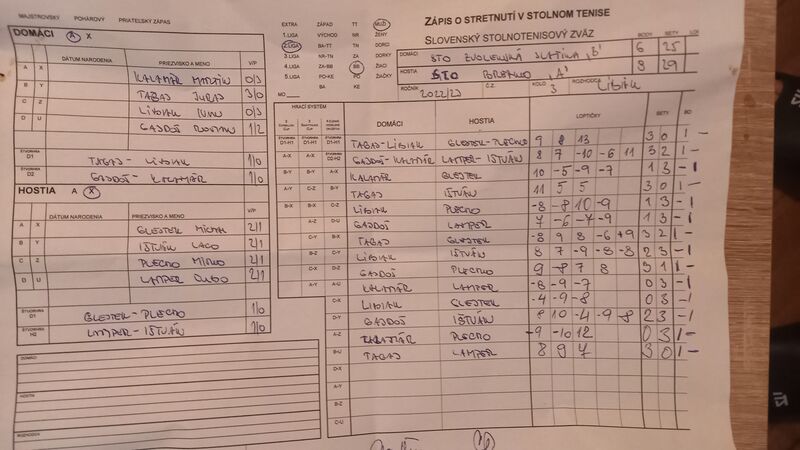 MAJSTROVSKÝ POHÁROVÝ PRIATEĽSKÝ ZÁPAS
DOMÁCI A X
DÁTUM NARODENIA PRIEZVISKO A MENO V/P
A X KALAMÁR 0/3
B Y TAGAJ JURAJ 3/0
C Z LIBIAK 0/3
D U GAJDOŠ 1/2
ŠTVORHRA D1 TAGAJ - LIBIAK 1/0
ŠTVORHRA D2 GAJDOŠ KALAMÁR 1/0
HOSTIA A X
DÁTUM NARODENIA PRIEZVISKO A MENO V/P
A X GLESTEK MICHAL 2/1
B Y IŠTVÁN LACO 2/1
C Z PLECHO MIRKO 2/1
D U LAMPER DUŠO 2/1
ŠTVORHRA D1 GLESTEK - PLECHO 1/0
ŠTVORHRA H2 LAMPER - IŠTVÁN 1/0
DOMÁCI
HOSTIA
ROZHODCA
EXTRA ZÁPAD TT MUŽI
1.LIGA VÝCHOD NR ŽENY
2.LIGA BA-TT TN DORCI
3.LIGA NR-TN ZA DORKY
4.LIGA ZA-BB BB ŽIACI
5.LIGA PO-KE PO ŽIAČKY
BA KE
MO
ZÁPIS O STRETNUTÍ V STOLNOM TENISE
SLOVENSKÝ STOLNOTENISOVÝ ZVÄZ BODY SETY
DOMÁCI STO ZVOLENSKÁ SLATINA "B" 6 25
HOSTIA STO "A" 29
ROČNÍK 2022/23 Č.Z. KOLO 3 ROZHODCA LIBIAK
HRACÍ SYSTÉM DOMÁCI HOSTIA LOPTIČKY SETY
D1-H1 D1-H1 D1-H1 TAGAJ-LIBIAK GLESTEK-PLECHO 9 8 13 3 0 1 -
A-X A-X D2-H2 GAJDOŠ-KALAMÁR LAMPER-IŠTVÁN 8 7 -10 -6 11 3 2 1 -
B-Y B-Y A-X KALAMÁR GLESTEK 10 -5 -9 -7 1 3 - 1
A-Y C-Z B-Y TAGAJ IŠTVÁN 11 5 5 3 0 1 -
B-X B-X C-Z LIBIAK PLECHO -8 -8 10 -9 1 3 - 1
A-Z D-U GAJDOŠ LAMPER 7 -6 -7 -9 1 3 - 1
C-Y B-X TAGAJ GLESTEK -8 9 8 -6 +9 3 2 1 -
B-Z C-Y LIBIAK IŠTVÁN 8 7 -9 -8 -8 2 3 - 1
C-X D-Z GAJDOŠ PLECHO 9 -8 7 8 3 1 1 -
A-Y A-U KALAMÁR LAMPER -8 -9 -7 0 3 - 1
C-X LIBIAK GLESTEK -4 -9 -8 0 3 - 1
D-Y GAJDOŠ IŠTVÁN 8 10 -4 -9 -8 2 3 - 1
A-Z KALAMÁR PLECHO -9 -10 12 0 3
B-U TAGAJ LAMPER 8 9 7 3 0 1 -
D-X
A-Y
B-Z
C-U